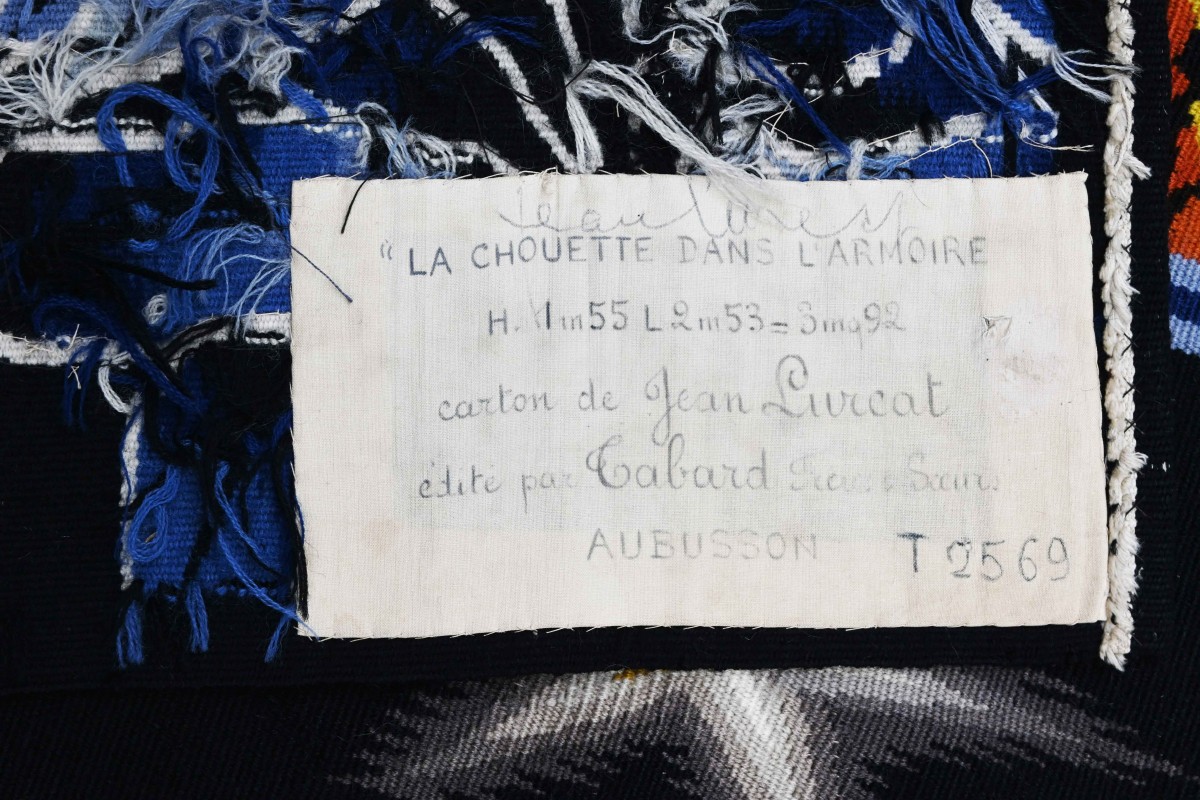 Jean Lurçat
"LA CHOUETTE DANS L'ARMOIRE
H. 1m55 L 2m53 = 3mq92
carton de Jean Lurcat
édité par Tabard Freres & Sœurs
AUBUSSON T 2569